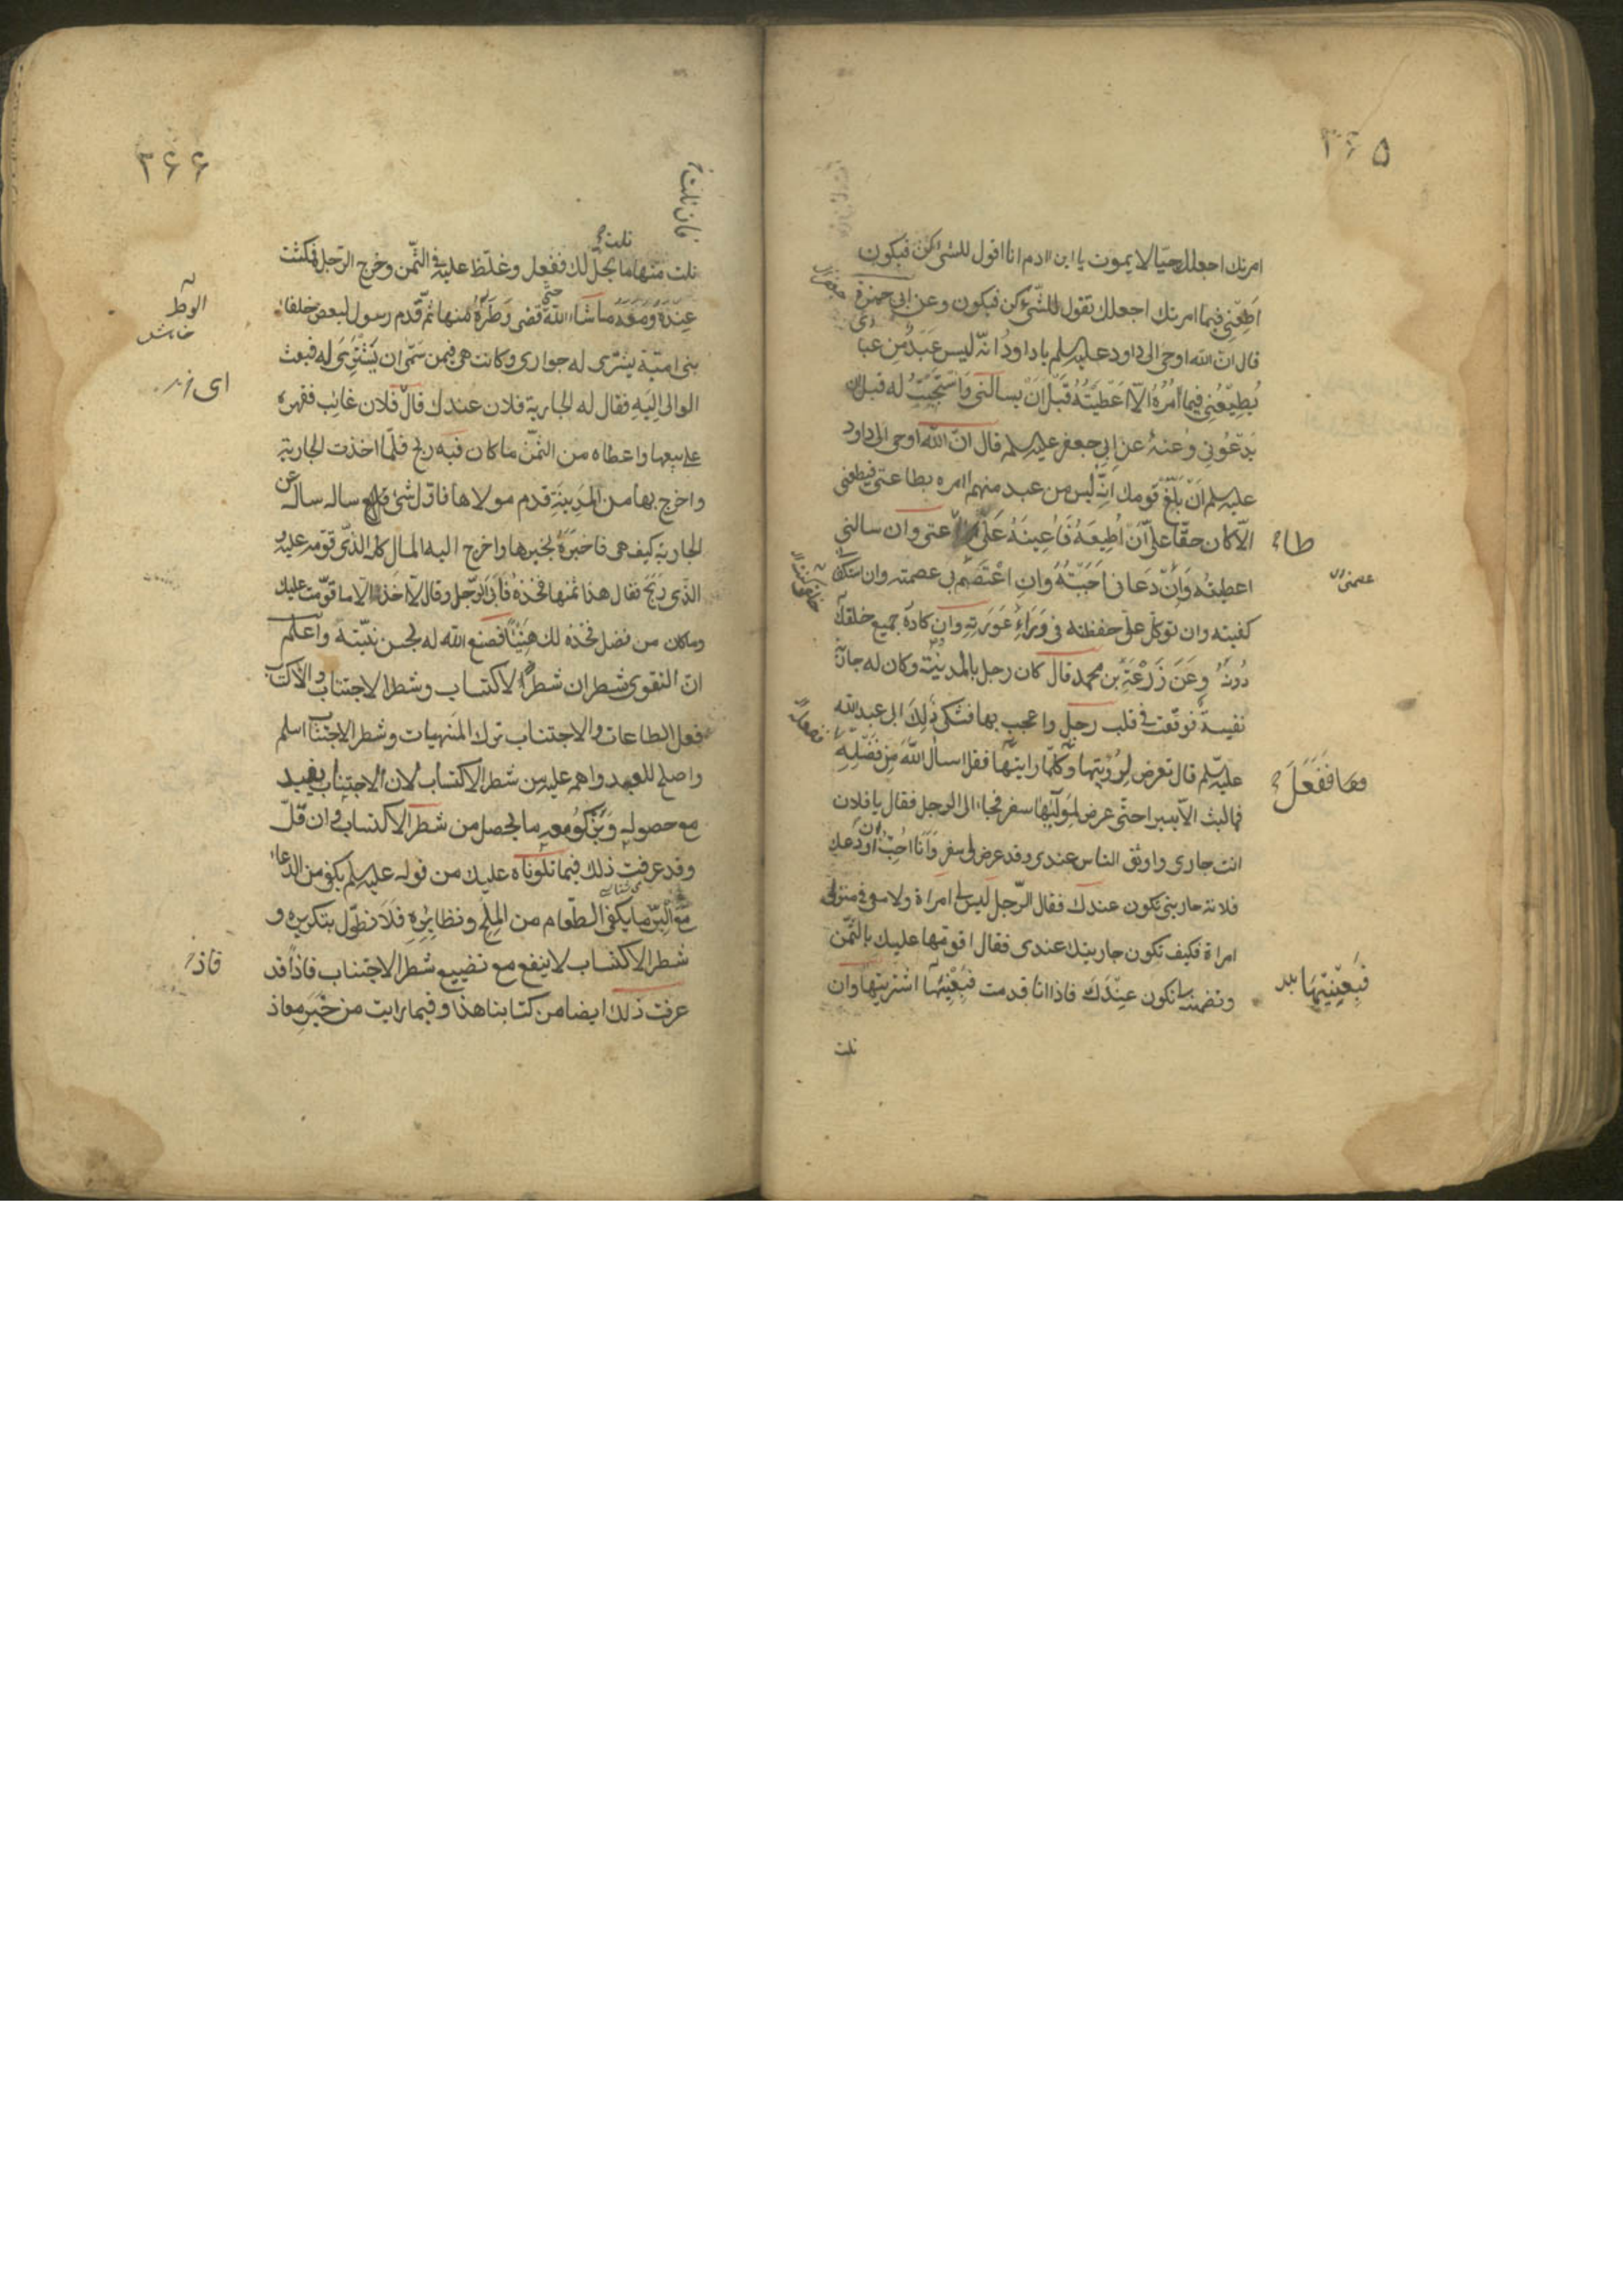 ٣۶۵
امرتك اجعلك حيّا لا يموت يا ابن ادم انا اقول للشئ كن فيكون
اطعني فيما امرتك اجعلك تقول للشّئ كن فيكون وعن ابي حمزة
قال انّ الله اوحى الى داود عليه سلم يا داودُ انّه ليس عَبدٌ من عبا دى
يُطيعُني فيما آمُرُهُ الّا اَعطَيتُه قَبل اَن يسالني وَاَستَجَبتُ له قبل ان
يَدعُوني وعَنهُ عن ابي جعفر عليه سلم قال انّ الله اوحى الى داود
عليه سلم اَن بَلِّغ قومك انّه ليس من عبد منهم امره بطاعتى فيطعنى
الّا كان حقّا علىّ اَن اُطيعَهُ فَاُعينَهُ عَلى طاعتى وان سالنى
اعطيته وَاِن دَعَانى اَجَبتُهُ وَانِ اعتَصَم بى عصمته وان استكفانى
كفيته وان توكل علىّ حفظته فى وَرَاءِ عَورَته وان كادهُ جميع خلقى كنت
دُونهُ وَعَن زَرعَةِ بن محمد قال كان رجل بالمدينة وكان له جارية
نفيسة فوقعت فى قلب رجل واعجب بها فشكى ذلِكَ الى ابى عبد الله
عليه سّلم قال تعرض لِرُؤيتها وَكلّما رايتها فقل اسال اللهَ مِن فَضلِهِ
فما لبث الّا يسيرا حتّى عرض لِمَوليها سفر فجاء الى الرجل فقال يا فلان
انت جارى واوثق الناس عندى وقد عرض لى سفر وَاَنا احُبّ ان اودعك
فلانة جاريتى تكون عندك فقال الرّجل ليس لى امراة ولا معى فى منزلى
امراة فكيف تكون جاريتك عندى فقال اقومها عليك بالثّمن
وتضمنه لى تكون عِندَكَ فاذا انا قدمت فَبِعْنيها اشتريتها وان
نلت
طا
عصمته
فعا فَفَعَلَ
فَبِعْنيتها بد
٣۶۶
فان نلت
نلت منها ما يحلّ لك ففعل وغلّظ عليه فى الثّمن وخرج الرّجل فمكثت
عِندَهُ وَمَعَهُ ماشَاء الله حتى قضى وَطَرَهُ منها ثم قدم رسول لبعض خلفاء
بنى اميّة يشترى له جوارى وكانت هى فيمن سَمّى ان يَشتَرِى له فبعث
الوالى اِليَهِ فقال له الجارية فلان عندك قال فلان غائب فقهره
على بيعها واعطاه من الثّمن ما كان فيه ربح فلمّا اخذت الجارية
واخرج بها من المَدِينَةِ قدم مولاها فاوّل شئ ساله ساله عن
الجارية كيف هى فاخبَرهُ بخبرها واخرج اليه المال كله الذّى قوّمه عليه و
الذّى رَبِحَ فقال هذا ثمنها فخذهُ فَاَبى الرّجل وقال لا اخذ الّا ما قوّمت عليك
وما كان من فضل فخذه لك هَنيئًا فصنع الله له بحسن نيّته واعلم
انّ التقوى شطران شطر الاكتساب وشطر الاجتناب والاكتساب
فعل الطاعات والاجتناب ترك المنهيات وشطر الاجتناب اسلم
واصلح للعبد واهم عليه من شطر الاكتساب لان الاجتناب يفيد
مع حصوله وَيَزكُو معه ما يحصل من شطر الاكتساب وان قلّ
وقد عرفت ذلك فيما تلوناه عليك من قوله عليه سلم يكفى من الدعاء
مع البِرّ ما يكفى الطّعام من المِلح ونظائِره فلا نطوّل بتكريره و
شطر الاكتساب لا ينفع مع تضييع شطر الاجتناب فاذاً قد
عرفت ذلك ايضا من كتابنا هذا وفيما رايت من خَبَر معاذ
الوطر
اى
فاذ